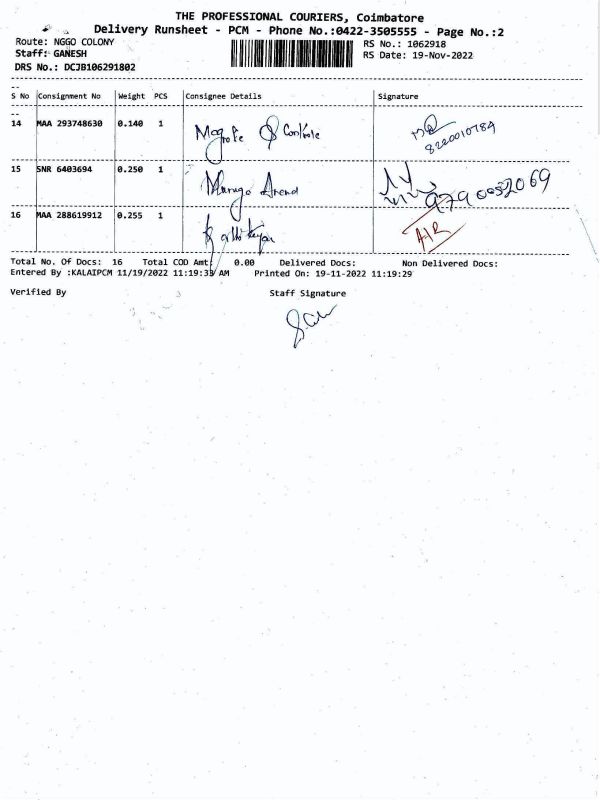 THE PROFESSIONAL COURIERS, Coimbatore
Delivery Runsheet - PCM - Phone No.:0422-3505555 - Page No.:2
Route: NGGO COLONY
Staff: GANESH
DRS No.: DCJB106291802
RS No.: 1062918
RS Date: 19-Nov-2022
S No Consignment No Weight PCS Consignee Details Signature
14 MAA 293748630 0.140 1 Controle
8220010789
15 SNR 6403694 0.250 1
9790052069
16 MAA 288619912 0.255 1
Total No. Of Docs: 16 Total COD Amt: 0.00 Delivered Docs: Non Delivered Docs:
Entered By :KALAIPCM 11/19/2022 11:19:33 AM Printed On: 19-11-2022 11:19:29
Verified By Staff Signature